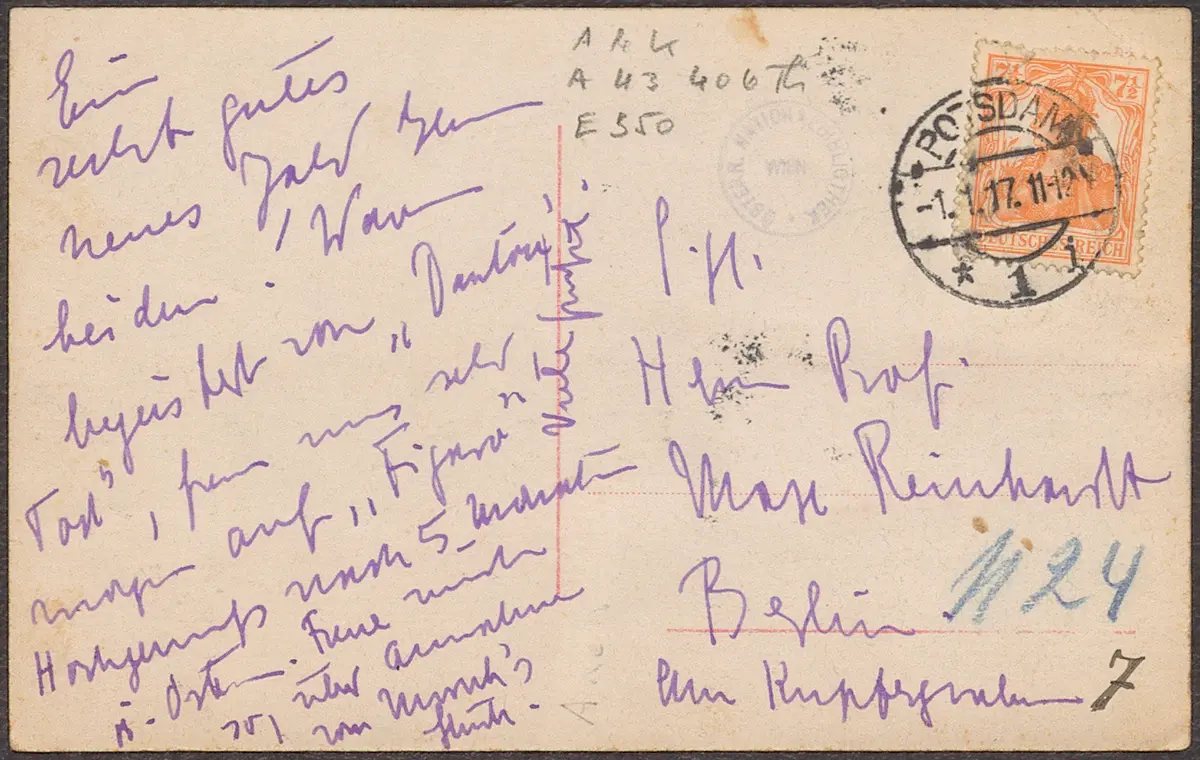 Ein
recht gutes
neues Jahr Ihnen
beiden! Waren
begeistert von „Danton's
Tod", freuen uns sehr
morgen auf „Figaro"
Hochgenuß nach 5 Monaten
i. Osten. Freue mich
über Annahme
von
Viele Grüße.
A N K
A 43 406 Th
E 350
ÖSTERR. NATIONALBIBLIOTHEK
WIEN
POTSDAM
-1.1.17. 11-12V
* 1 i
7½ 7½
DEUTSCHES REICH
S.H.
Herrn Prof.
Max Reinhardt
Berlin. N 24
Am Kupfergraben 7